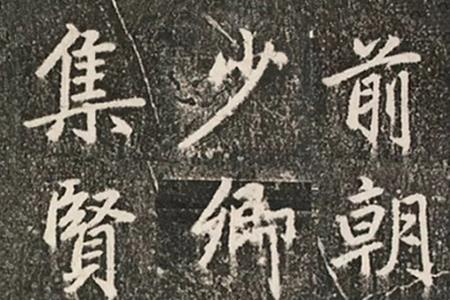 前朝
少卿
集賢